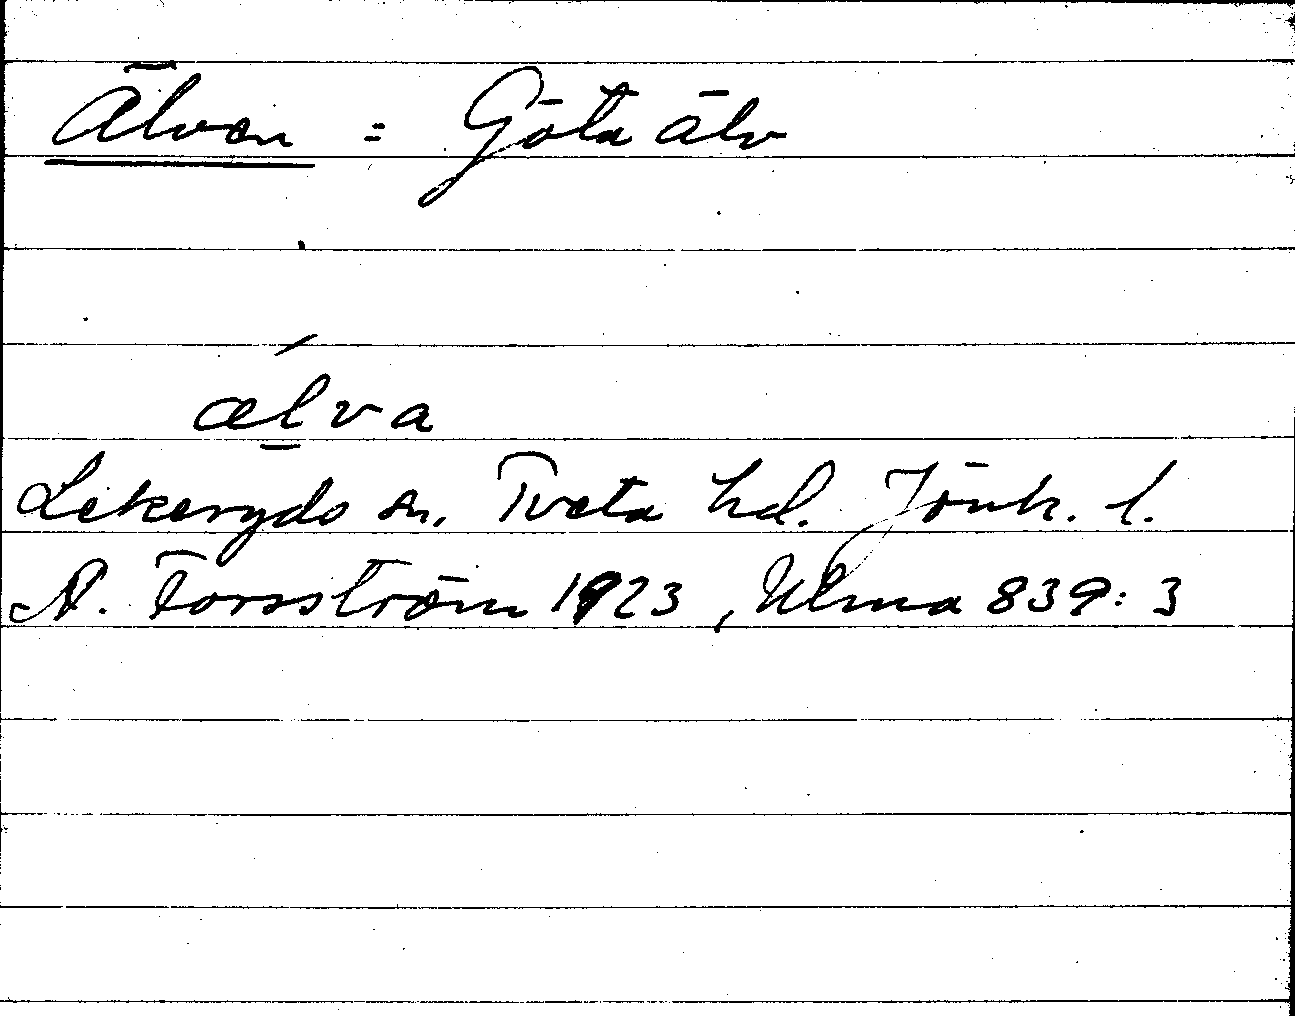 Älven = Göta älv
ǽl̠va
Lekeryds sn. Tveta hd. Jönk. l.
A. Forsström 1923, Ulma 839:3